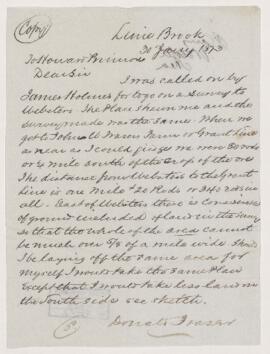 (Copy)
Lime Brook
30 Jany 1873
To Howard Primrose
Dear Sir
I was called on by
James Holmes for to go on a survey to
Websters. The Plan Shewn me and the
survey made was the same. When we
got to John Frasers Farm or Grant line
as near as I could judge we were 80 rods
or ¼ mile south of the
The distance from Websters to the Grant
line is one Mile + 20 Rods or 340 rods in
all. East of Websters there is considerable
of ground included
so that the whole of the area cannot
be much over 5/8 of a mile wide. Should
I be laying off the same area for
myself I would take the same Plan
Except that I would take less land on
the South side see sketch.
Donald Fraser